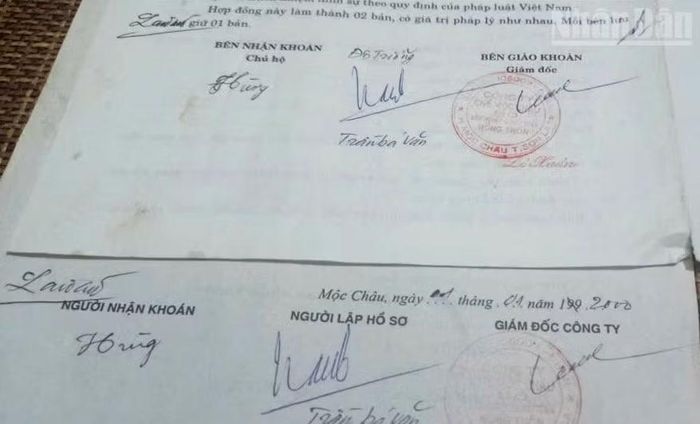 theo quy định của pháp luật Việt Nam
Hợp đồng này làm thành 02 bản, có giá trị pháp lý như nhau. Mỗi bên lưu
giữ 01 bản.
NhânDân
BÊN NHẬN KHOÁN
Chủ hộ
Hùng
Đội trưởng
Trần bá Văn
BÊN GIAO KHOÁN
Giám đốc
MỘC CHÂU T. SƠN LA
Lê Xuân
Mộc Châu, ngày tháng 01 năm 199 2000
NGƯỜI NHẬN KHOÁN
Hùng
NGƯỜI LẬP HỒ SƠ
Trần bá Văn
GIÁM ĐỐC CÔNG TY